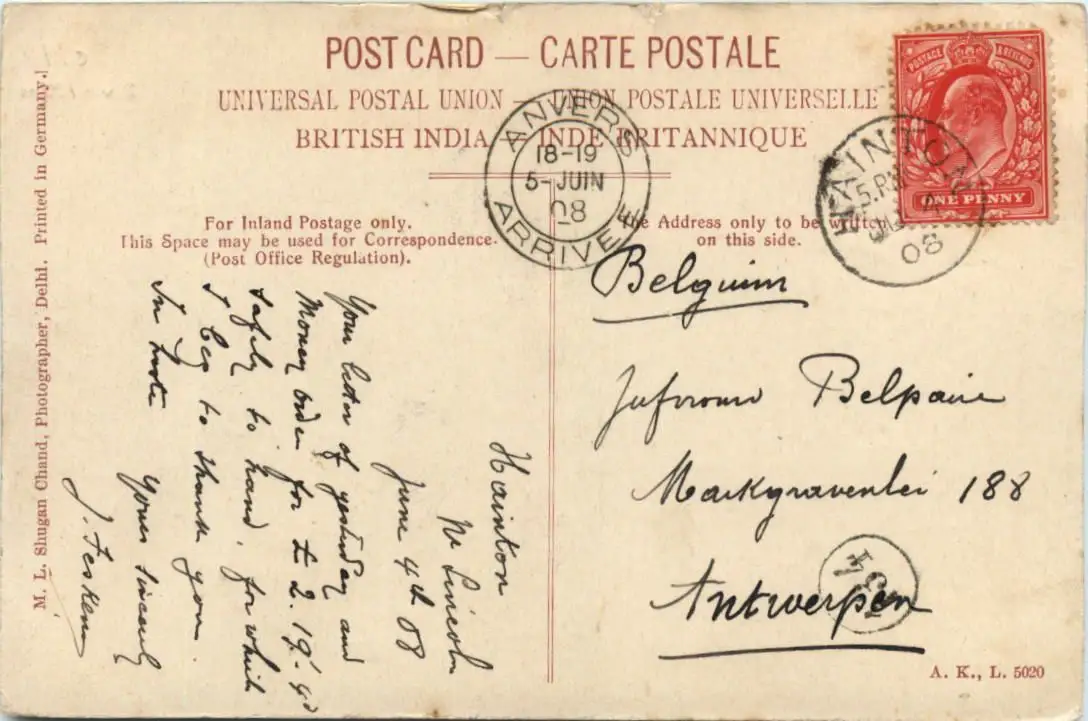 POST CARD — CARTE POSTALE
UNIVERSAL POSTAL UNION — UNION POSTALE UNIVERSELLE
BRITISH INDIA INDE BRITANNIQUE
POSTAGE & REVENUE
ONE PENNY
HAINTON
5.PM
08
ANVERS
18-19
5-JUIN
08
ARRIVEE
For Inland Postage only.
This Space may be used for Correspondence.
(Post Office Regulation).
The Address only to be written
on this side.
Hainton
Nr Lincoln
June 4th 08
Your letter of yesterday and
Money order for £ 2. 19. 4d
safely to hand, for which
I beg to thank you.
In haste
Yours sincerely
J.
Belgium
Jufvrouw Belpaire
Markgravenlei 188
Antwerpen
134
M. L. Shugan Chand, Photographer, Delhi. Printed in Germany.]
A. K., L. 5020